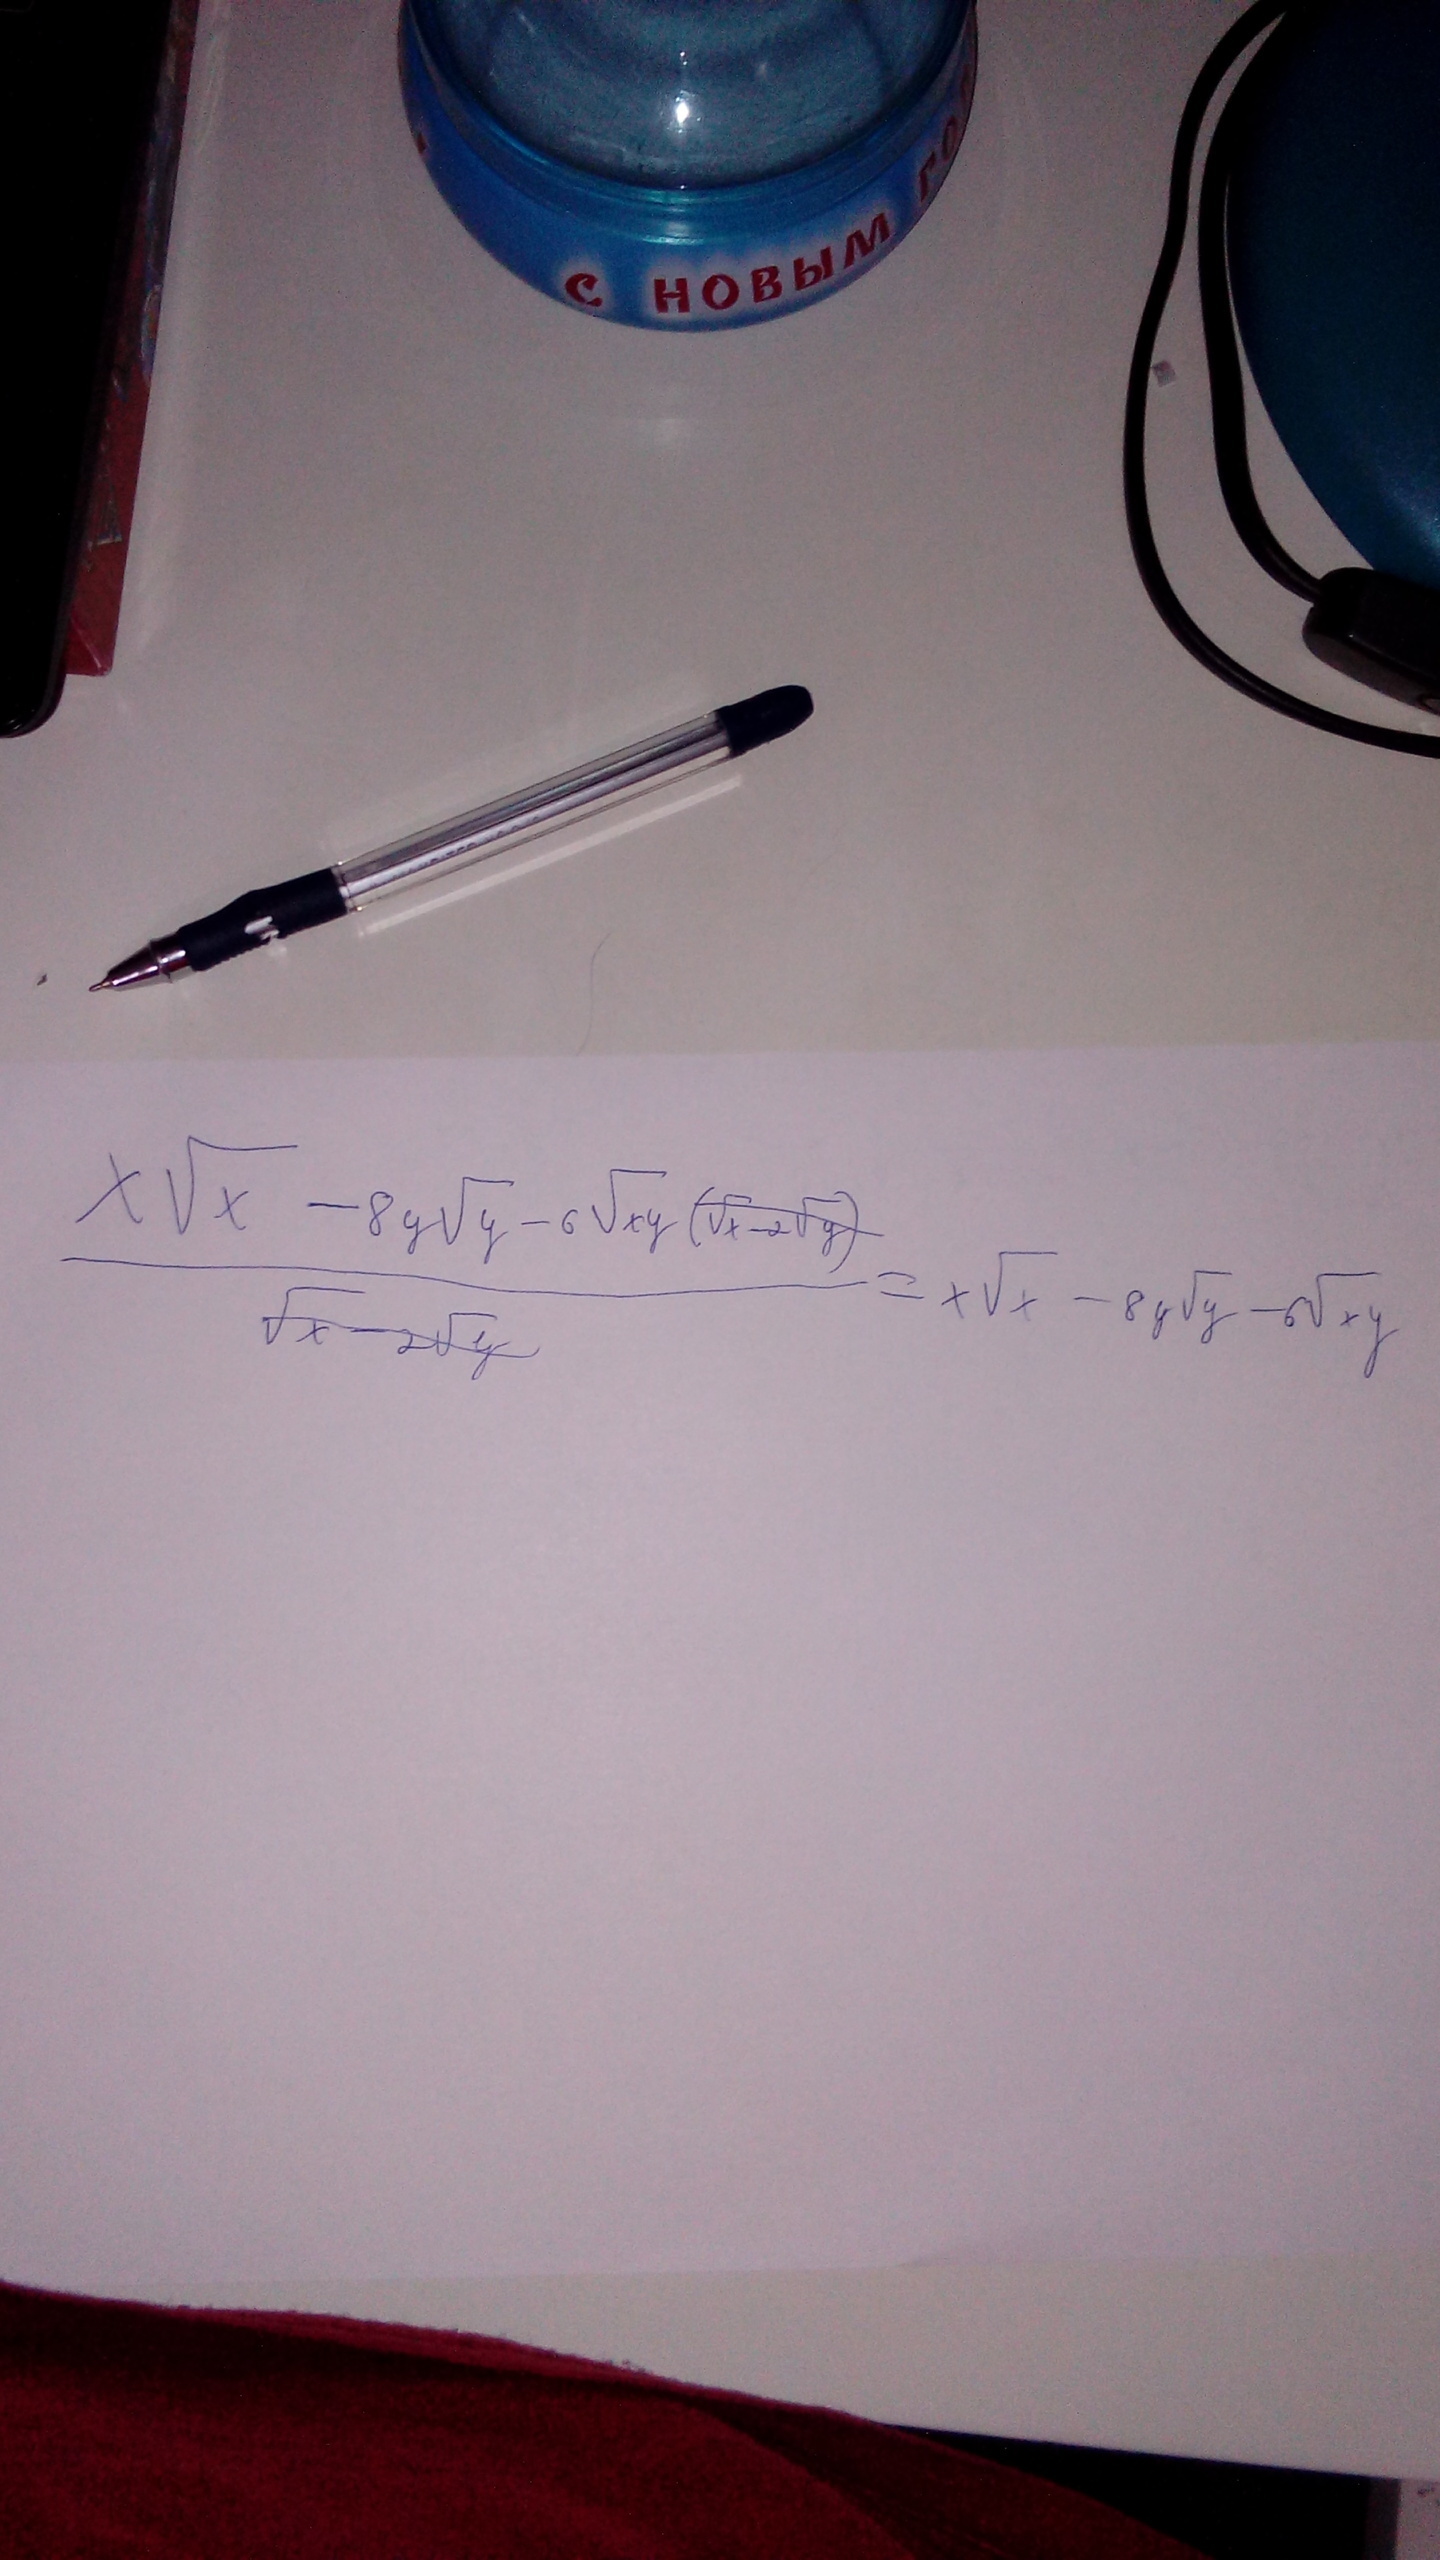 С НОВЫМ ГО
x√x - 8y√y - 6√xy (√x - 2√y)
√x - 2√y
= x√x - 8y√y - 6√xy